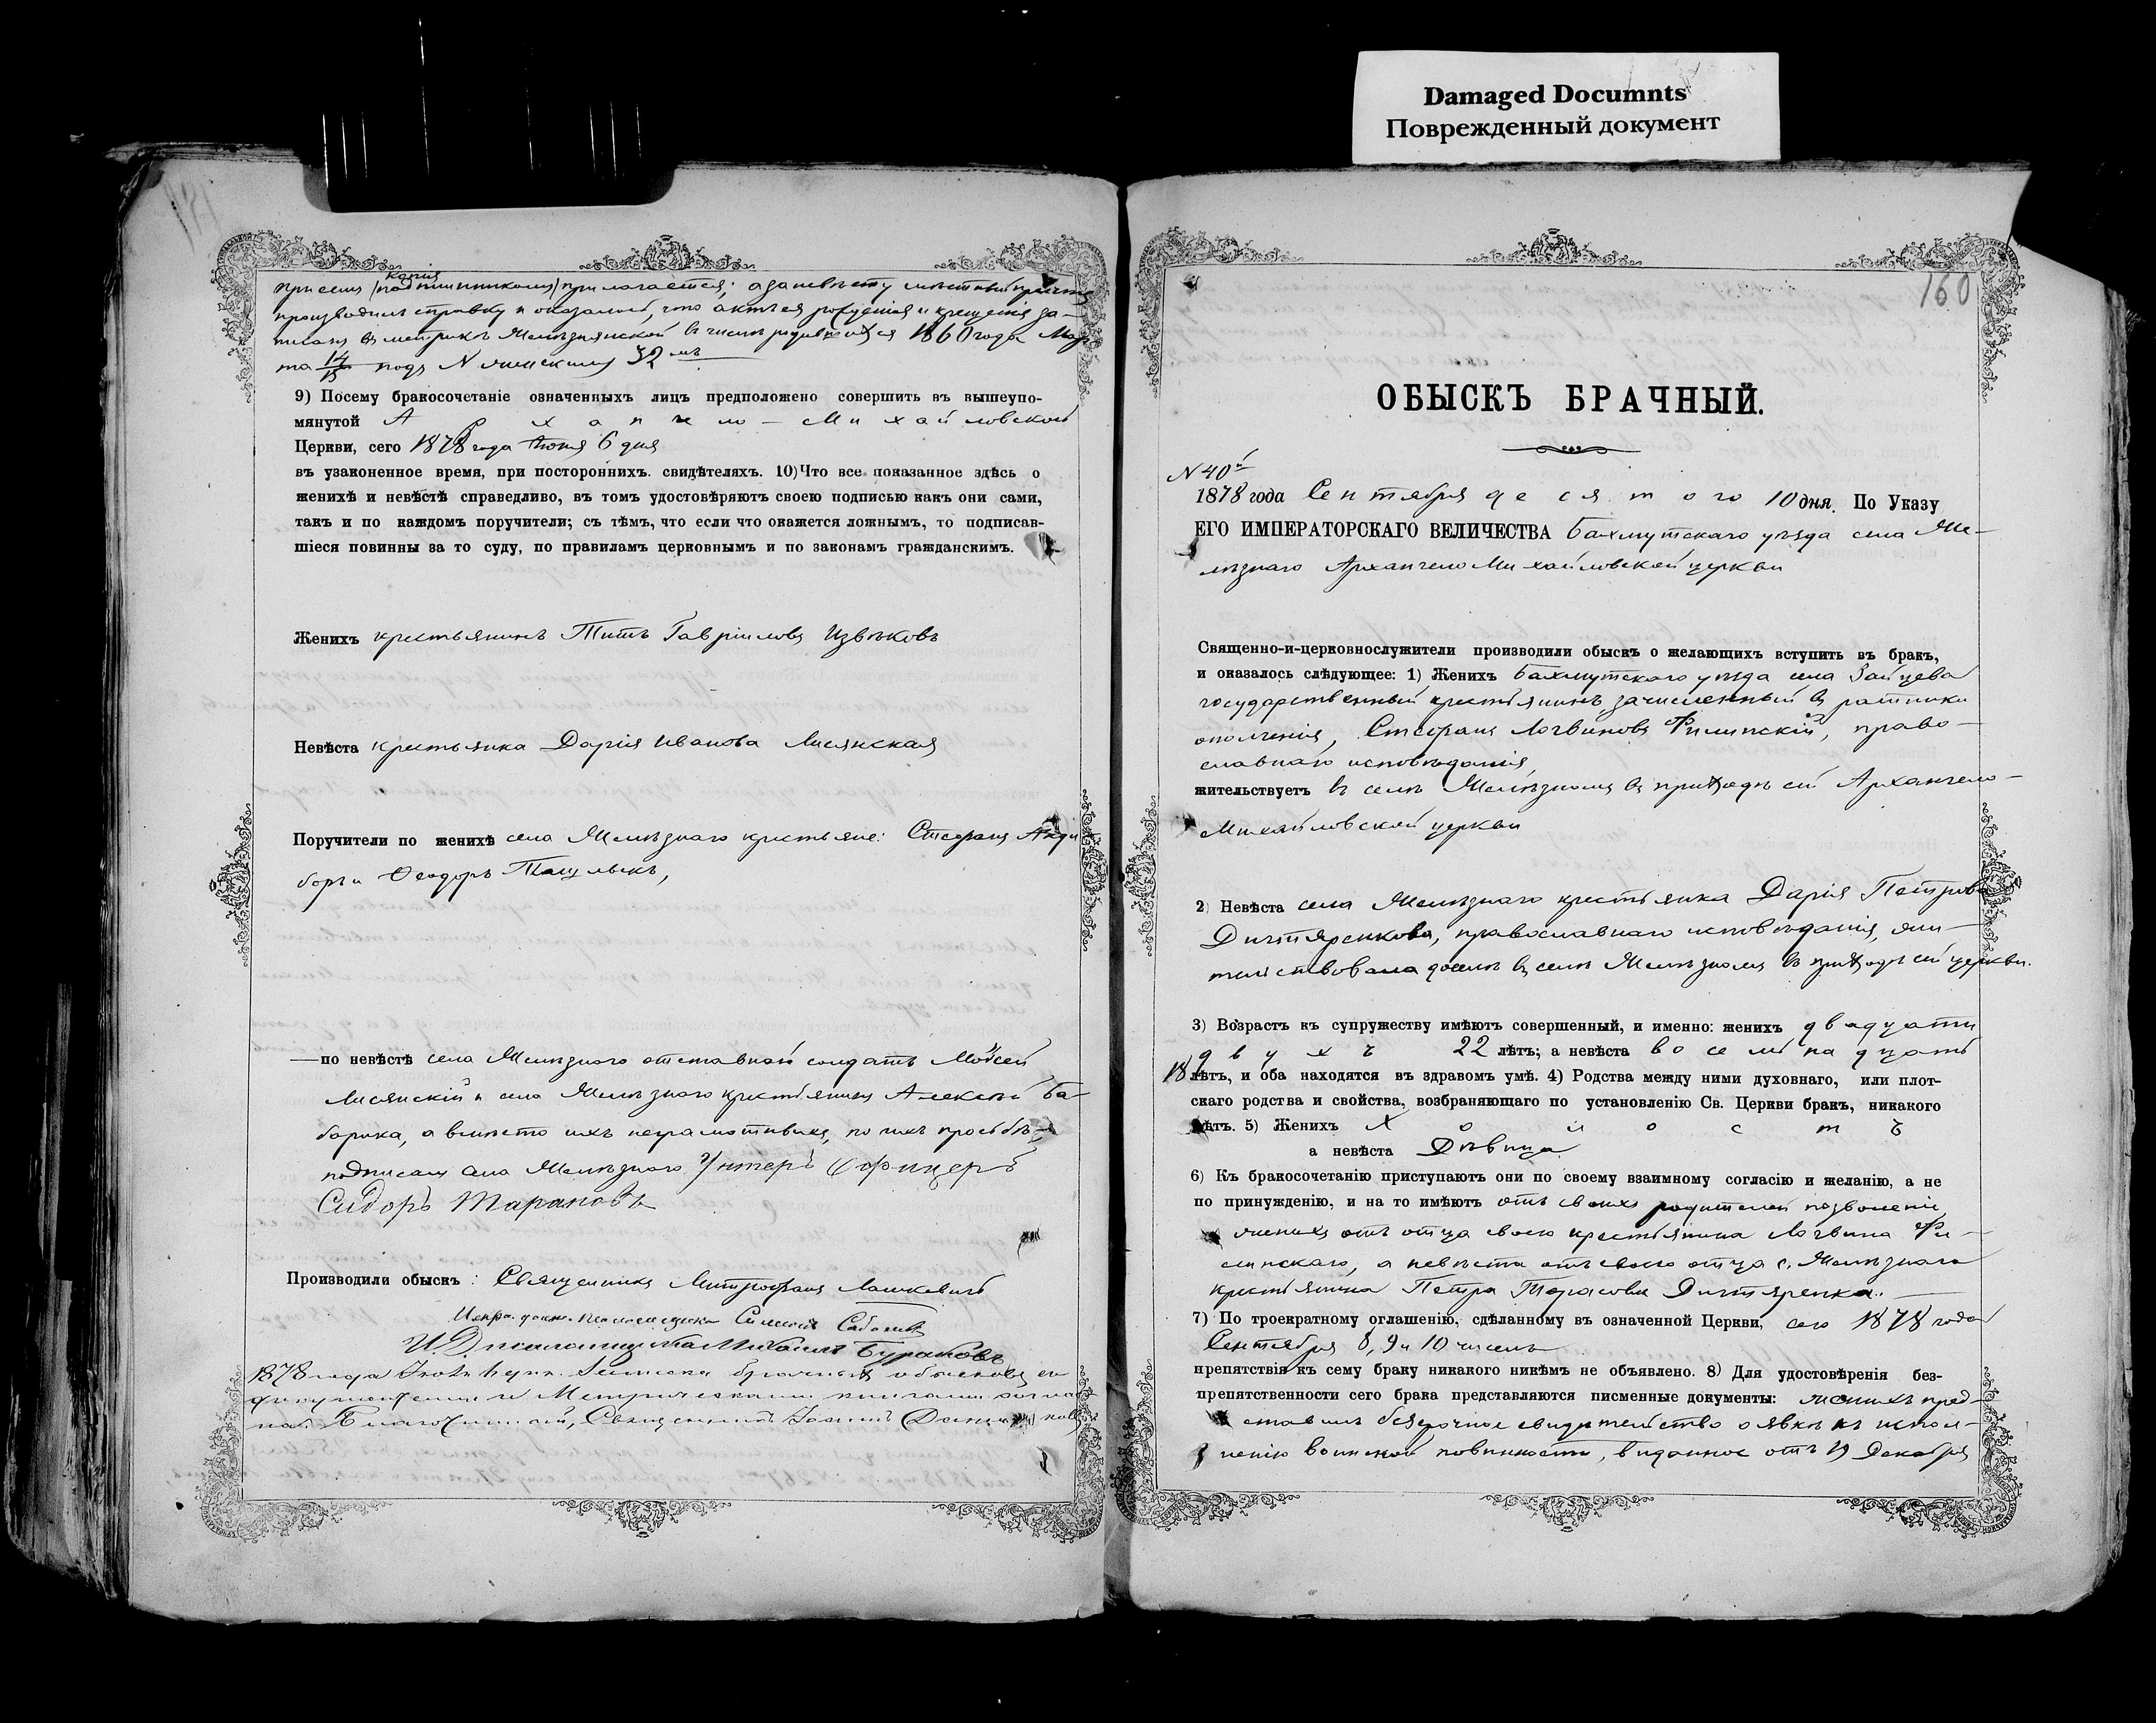 Damaged Documnts
Поврежденный документ
копія
при семъ /подлинникомъ/ прилагается; а за невѣсту мѣстный причтъ
производилъ справку и оказалось, что актъ ея рожденія и крещенія за-
писанъ въ метрикѣ Желѣзнянской въ числѣ родившихся 1860 года Мар-
та 14/15 подъ N женскимъ 32 мъ
9) Посему бракосочетаніе означенныхъ лицъ предположено совершить въ вышеупо-
мянутой Архангело-Михайловской
Церкви, сего 1878 года Іюня 6 дня
въ узаконенное время, при постороннихъ свидѣтеляхъ. 10) Что все показанное здѣсь о
женихѣ и невѣстѣ справедливо, въ томъ удостовѣряютъ своею подписью какъ они сами,
такъ и по каждомъ поручители; съ тѣмъ, что если что окажется ложнымъ, то подписав-
шіеся повинны за то суду, по правиламъ церковнымъ и по законамъ гражданскимъ.
Женихъ крестьянинъ Титъ Гавріиловъ Извѣковъ
Невѣста крестьянка Дарія Иванова Лисянская
Поручители по женихѣ села Желѣзнаго крестьяне: Стефанъ
и Ѳеодоръ
— по невѣстѣ села Желѣзнаго отставной солдатъ Моѵсей
Лисянскій и села Желѣзнаго крестьянинъ Алексѣй Ба-
барика, а вмѣсто ихъ неграмотныхъ, по ихъ просьбѣ,
подписалъ села Желѣзнаго Унтеръ Офицеръ
Сидоръ Тарановъ
Производили обыскъ: Священникъ Митрофанъ Лашкевичъ
псаломщика
Михаилъ Бураковъ
1878 года
Метрическими книгами
Благочинный, Священникъ Іоаннъ
160
ОБЫСКЪ БРАЧНЫЙ.
N 40й
1878 года Сентября десятого 10 дня. По Указу
ЕГО ИМПЕРАТОРСКАГО ВЕЛИЧЕСТВА Бахмутскаго уѣзда села Же-
лѣзнаго Архангело Михайловской церкви
Священно-и-церковнослужители производили обыскъ о желающихъ вступить въ бракъ,
и оказалось слѣдующее: 1) Женихъ Бахмутскаго уѣзда села Зайцева
государственный крестьянинъ, зачисленный въ ратники
ополченія, Стефанъ Логвиновъ Филипскій, право-
славнаго исповѣданія,
жительствуетъ въ селѣ Желѣзномъ въ приходѣ сей Архангело-
Михайловской церкви
2) Невѣста села Желѣзнаго крестьянка Дарія Петрова
Дигтяренкова, православнаго исповѣданія, жи-
тельствовала доселѣ въ селѣ Желѣзномъ въ приходѣ сей церкви.
3) Возрастъ къ супружеству имѣютъ совершенный, и именно: женихъ двадцати
двухъ 22 лѣтъ; а невѣста восемнадцать
18 лѣтъ, и оба находятся въ здравомъ умѣ. 4) Родства между ними духовнаго, или плот-
скаго родства и свойства, возбраняющаго по установленію Св. Церкви бракъ, никакого
нѣтъ. 5) Женихъ Холостъ
а невѣста Дѣвица
6) Къ бракосочетанію приступаютъ они по своему взаимному согласію и желанію, а не
по принужденію, и на то имѣютъ отъ своихъ родителей позволеніе,
женихъ отъ отца своего крестьянина Логвина Фи-
липскаго, а невѣста отъ своего отца с. Желѣзнаго
крестьянина Петра Тарасова Дигтяренка. —
7) По троекратному оглашенію, сдѣланному въ означенной Церкви, сего 1878 года
Сентября 8, 9 и 10 числъ
препятствія къ сему браку никакого никѣмъ не объявлено. 8) Для удостовѣренія без-
препятственности сего брака представляются писменные документы: женихъ пред-
ставилъ безсрочное свидѣтельство о явкѣ къ испол-
ненію воинской повинности, выданное отъ 19 Декабря